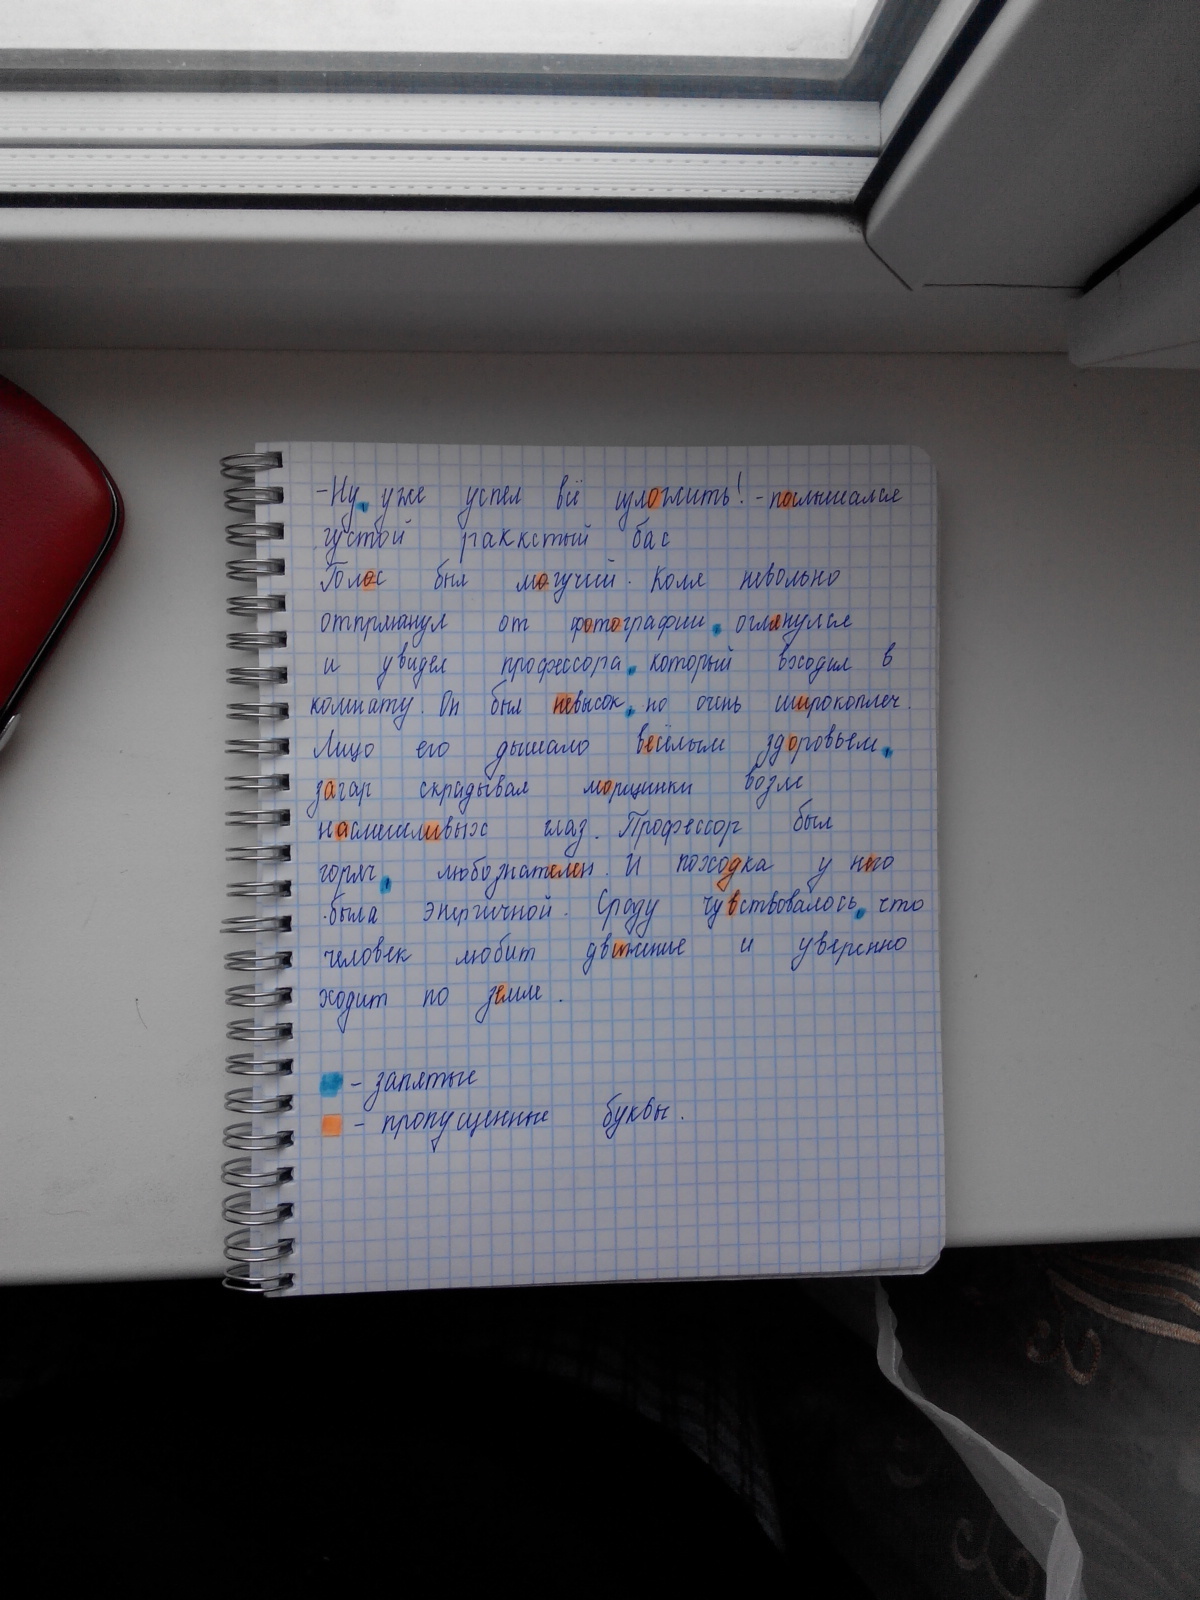 -Ну, уже успел всё изложить! - послышался
густой раккстый бас
Голос был могучий. Коля невольно
отпрянул от фотографии, оглянулся
и увидел профессора, который входил в
комнату. Он был невысок, но очень широкоплеч.
Лицо его дышало весёлым здоровьем,
загар скрадывал морщинки возле
насмешливых глаз. Профессор был
горяч, любознателен. И походка у него
была энергичной. Сразу чувствовалось, что
человек любит движенье и уверенно
ходит по земле.
- запятые
- пропущенные буквы.